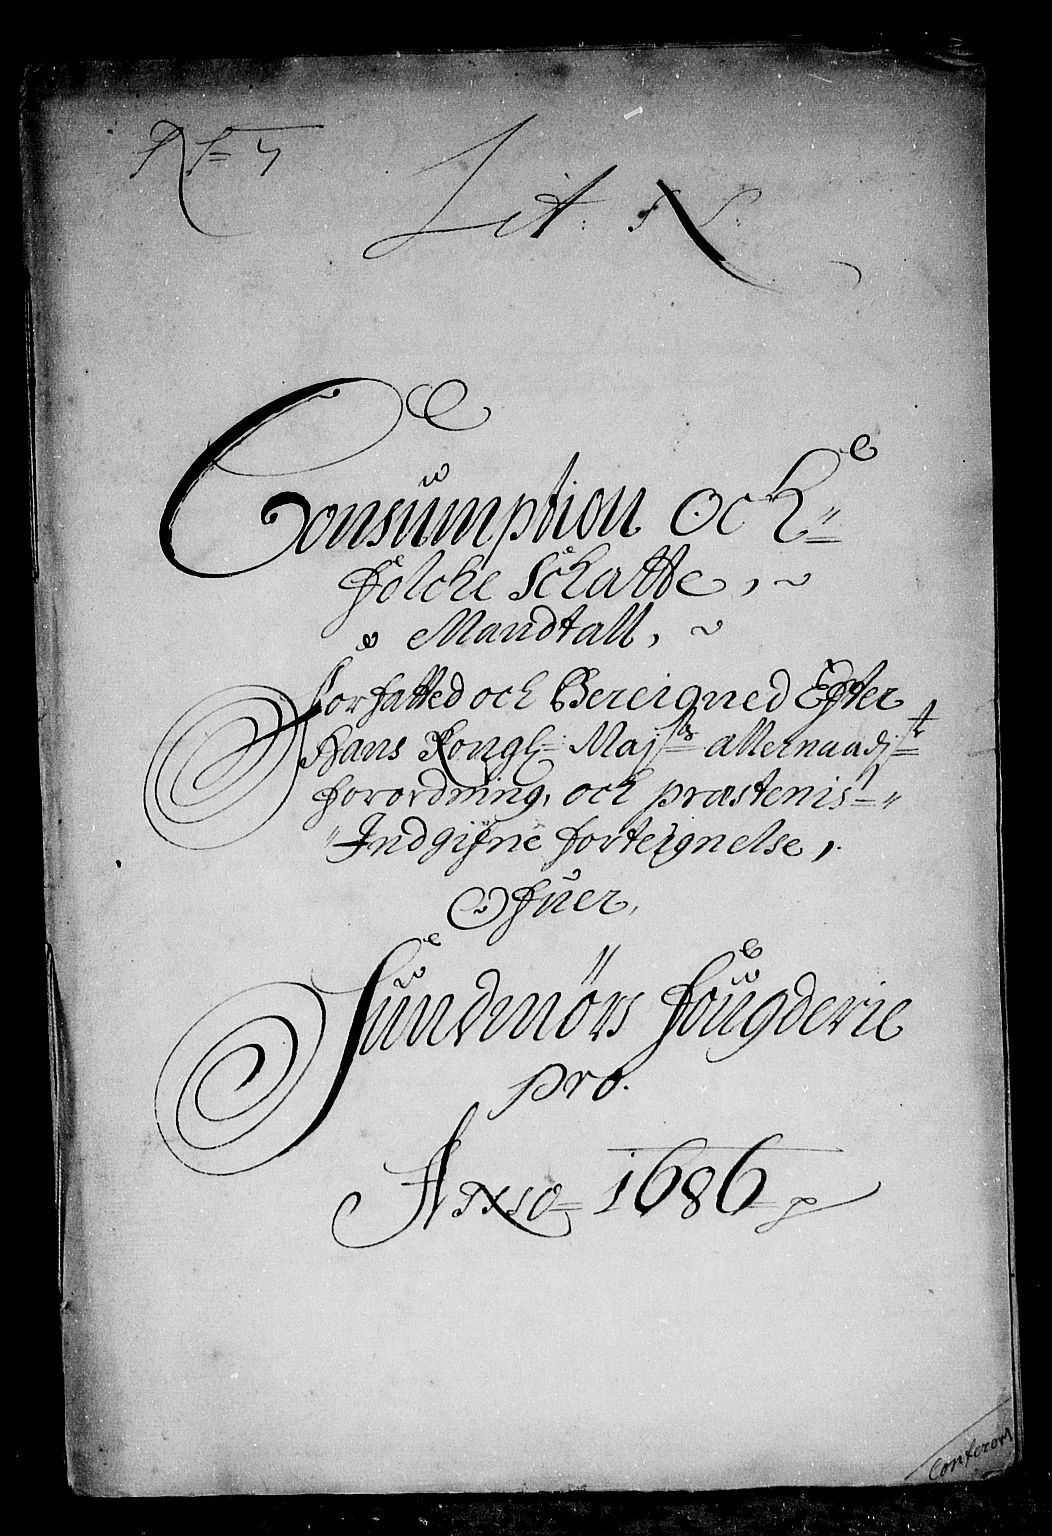 Lit:
Consumption och
folcke Schatte,
Mandtall,
Forfatted och Bereigned Effter
Hans Kongl: Maj:ts allernaadjst
forordning, och præstenis
Indgifne forteignelse,
Ofuer,
Sundmørs fougderie
pro.
Anno 1686
Conferert